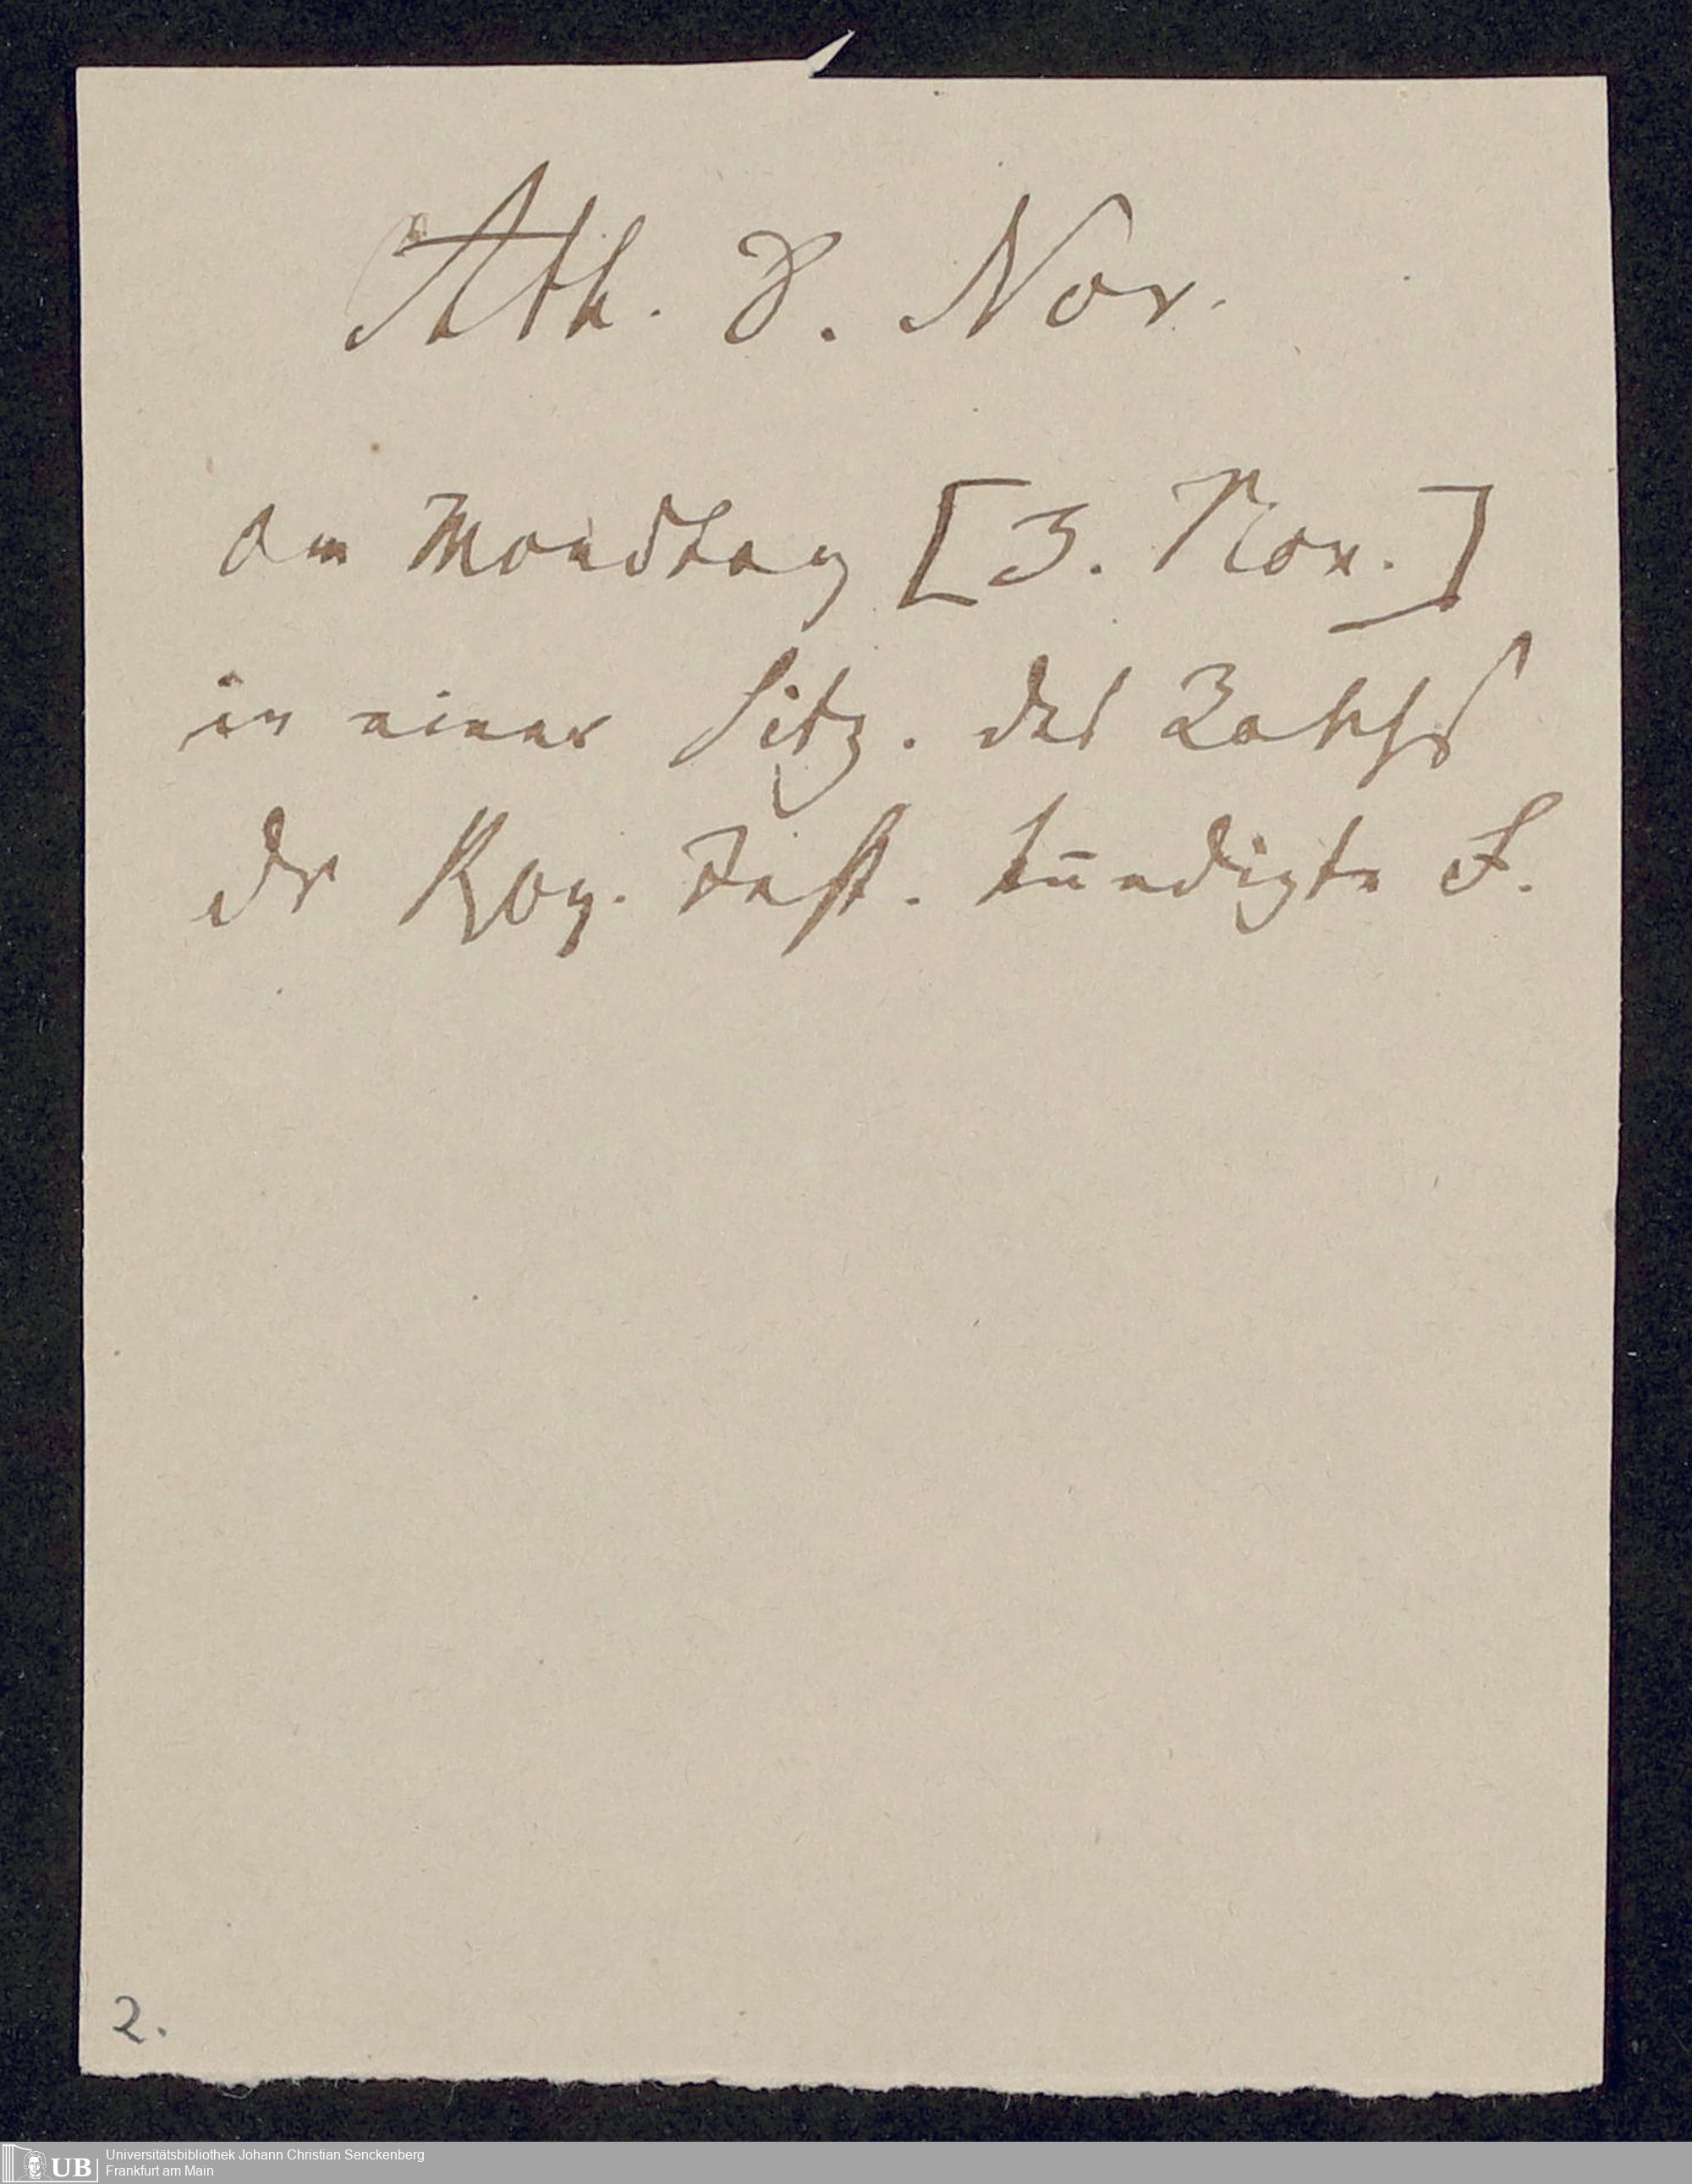 Ath. 8. Nov.
Am Mondtag [3. Nov.]
in einer Sitz. des
der Roy. Inst. kündigte F.
2.
UB
Universitätsbibliothek Johann Christian Senckenberg
Frankfurt am Main